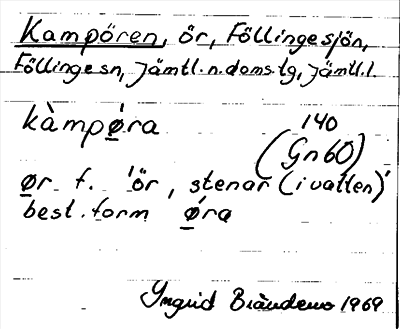 Kampören, ör, Föllingesjön,
Föllinge sn, Jämtl. n. doms. tg, Jämtl. l.
kàmpǿra 140
(Gn60)
ør f. 'ör, stenar (i vatten)'
best. form ǿra
Yngrid 1969